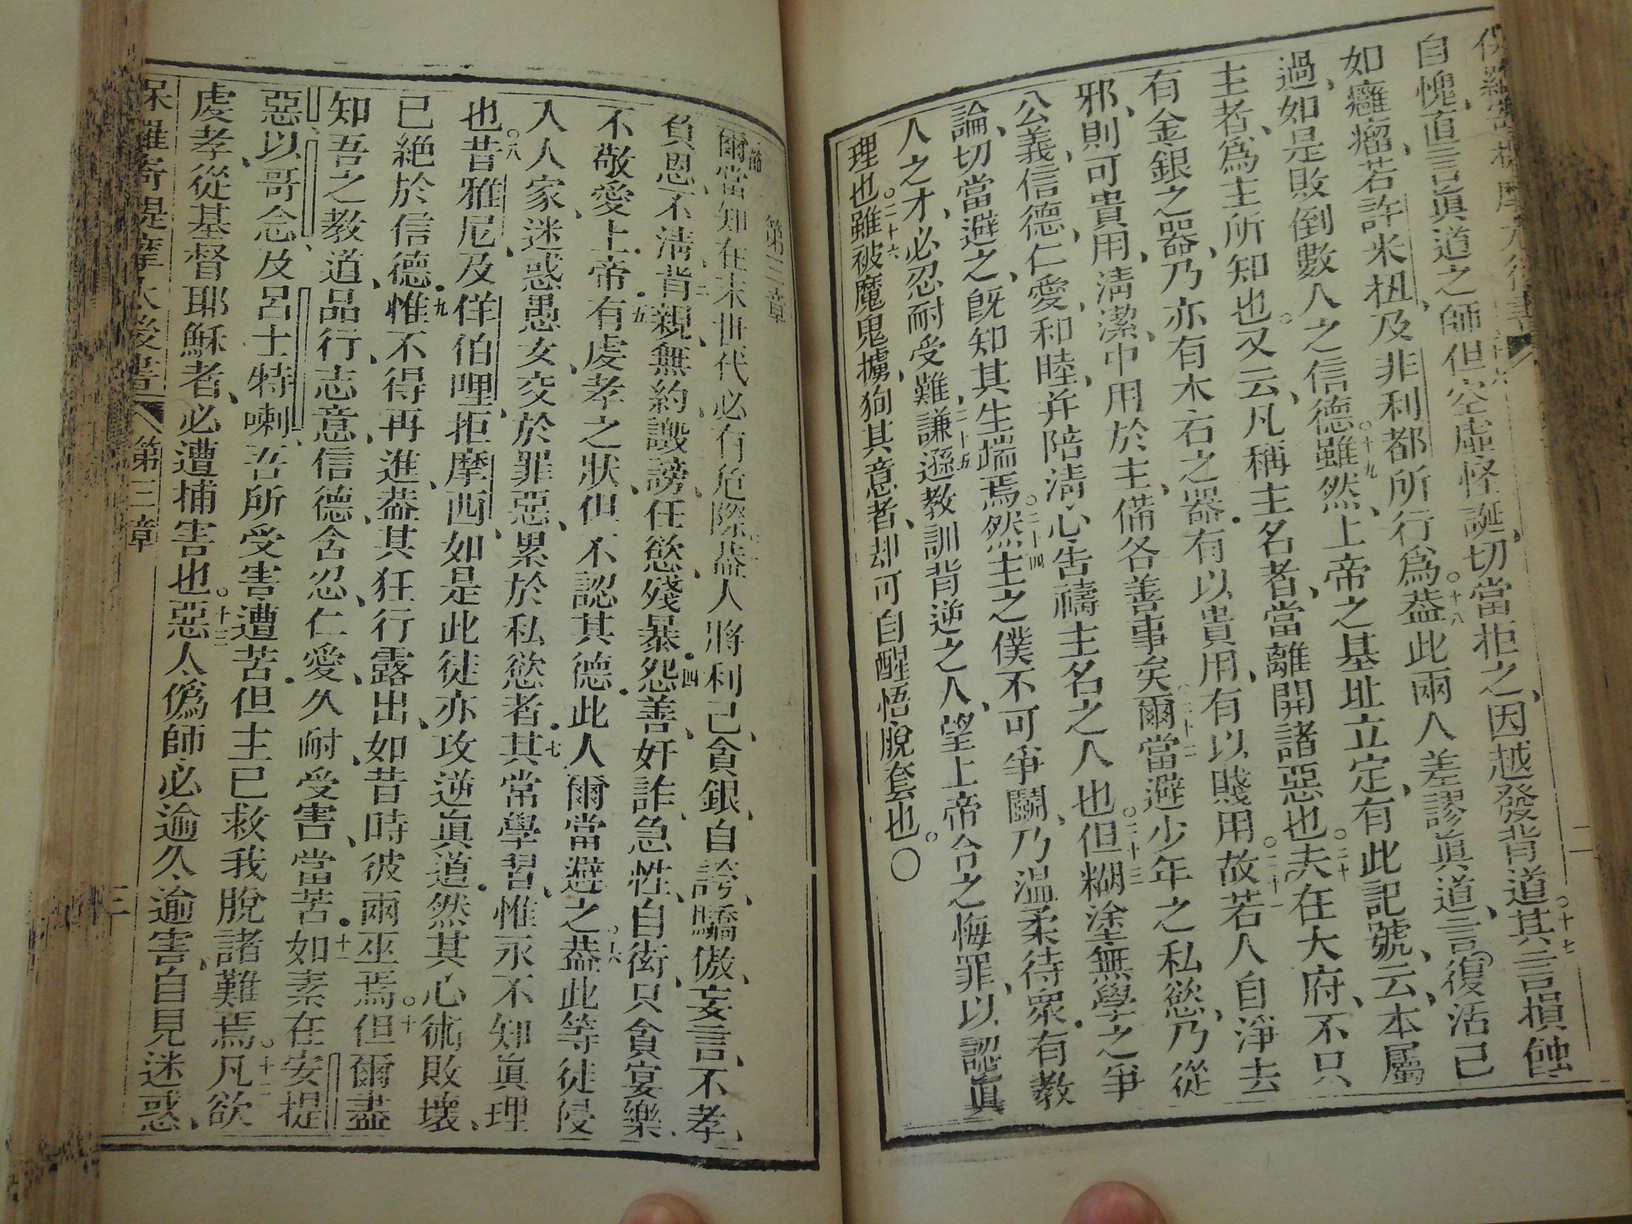 自愧直言眞道之師但空虛怪誕切當拒之因越發背道其言損蝕
如癰瘤若許米杻及非利都所行爲蓋此兩人差謬眞道言復活已
過如是敗倒數人之信德雖然上帝之基址立定有此記號云本屬
主者爲主所知也又云凡稱主名者當離開諸惡也夫在大府不只
有金銀之器乃亦有木石之器有以貴用有以賤用故若人自淨去
邪則可貴用淸潔中用於主備各善事矣爾當避少年之私慾乃從
公義信德仁愛和睦并陪淸心告禱主名之人也但糊塗無學之爭
論切當避之旣知其生端焉然主之僕不可爭鬭乃温柔待眾有教
人之才必忍耐受難謙遜教訓背逆之人望上帝令之悔罪以認眞
理也雖被魔鬼擄狥其意者却可自醒悟脫套也〇
第三章
爾當知在末世代必有危際蓋人將利己貪銀自誇驕傲妄言不孝
負恩不淸背親無約譭謗任慾殘暴怨善奸詐急性自衒只貪宴樂
不敬愛上帝有虔孝之狀但不認其德此人爾當避之蓋此等徒侵
入人家迷惑愚女交於罪惡累於私慾者其常學習惟永不知眞理
也昔雅尼及佯伯哩拒摩西如是此徒亦攻逆眞道然其心術敗壞
已絕於信德惟不得再進蓋其狂行露出如昔時彼兩巫焉但爾盡
知吾之教道品行志意信德含忍仁愛久耐受害當苦如素在安提
惡以哥念及呂士特喇吾所受害遭苦但主已救我脫諸難焉凡欲
虔孝從基督耶穌者必遭捕害也惡人僞師必逾久逾害自見迷惑
保羅寄提摩太後書 第三章 三